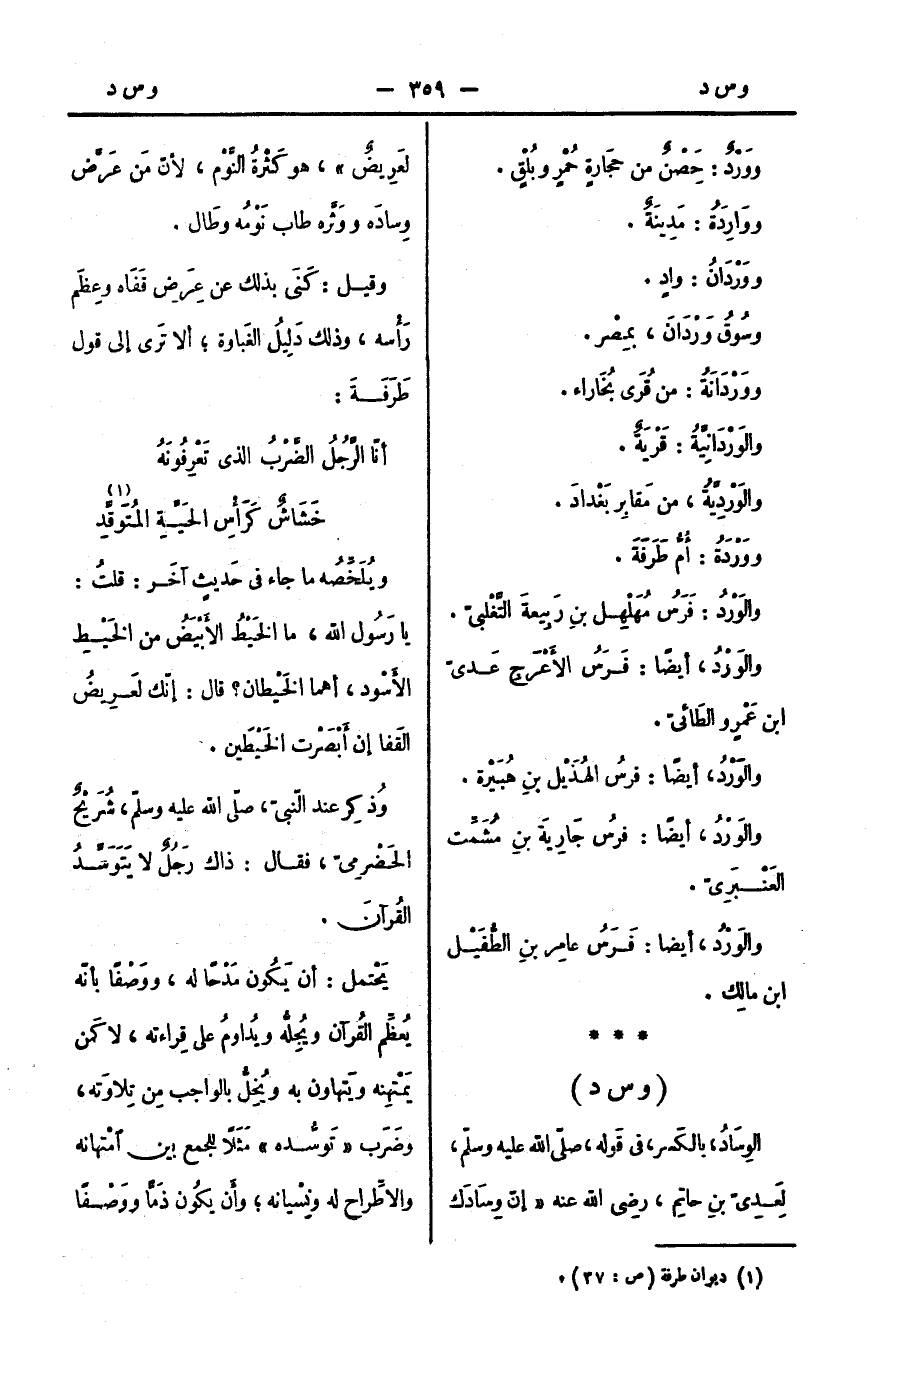 وس د — ٣٥٩ — وس د
ووَرْدٌ : حِصْنٌ من حجَارةٍ حُمْرٍ و بُلْقٍ .
ووَارِدَةُ : مَدِينَةٌ .
ووَرْدَانُ : وادٍ .
وسُوقُ وَرْدَانَ ، بمِصْر .
ووَرْدَانَةُ : من قُرَى بُخَاراء .
والوَرْدَانِيَّةُ : قَرْيَةٌ .
والوَرْدِيَّةُ ، من مَقابِر بَغْدادَ .
ووَرْدَةُ : أُمُّ طَرَفَةَ .
والوَرْدُ : فَرَسُ مُهَلْهِل بنِ رَبِيعةَ التَّغْلبىّ .
والوَرْدُ ، أيضًا : فَرَسُ الأَعْرَج عَدىّ
ابن عَمْرٍو الطَائىّ .
والوَرْدُ ، أيضًا : فرسُ الهُذَيْل بنِ هُبَيْرة .
والوَرْدُ ، أيضًا : فرسُ جَارِيَةَ بنِ مُشَمِّت
العَنْبَرِىّ .
والوَرْدُ ، أيضا : فَرَسُ عامِر بنِ الطُّفَيْل
ابن مالِك .
* * *
( وس د )
الوِسَادُ ، بالكَسر ، فى قَوله ، صلّى الله عليه وسلّم ،
لعَدِىّ بنِ حاتِم ، رضِى الله عنه « إنّ وِسَادَك
لعَرِيضٌ » ، هو كَثْرةُ النَّوْم ، لأنّ مَن عَرَّض
وِسادَه و وَثَّره طاب نَوْمُه وطَال .
وقيل : كَنَى بذلك عن عِرَض قَفَاه وعِظَم
رَأْسه ، وذلك دَلِيلُ الغَباوة ؛ ألا تَرى إلى قول
طَرَفَةَ :
أنَا الرَّجُلُ الضَّرْبُ الذى تَعْرِفُونَهُ
خَشَاشٌ كَرَأْسِ الحَيَّةِ المُتَوَقِّدِ (١)
ويُلَخِّصُه ما جاء فى حَديثٍ آخَر : قلتُ :
يا رَسُول الله ، ما الخَيْطُ الأَبْيَضُ من الخَيْط
الأَسْود ، أهما الخَيْطان؟ قال : إنّك لعَرِيضُ
القفا إن أَبْصَرْت الخَيْطَين .
وذُكِر عند النّبىّ ، صلّى الله عليه وسلّم ، شُرَيْحٌ
الحَضْرمِىّ ، فقال : ذاك رَجُلٌ لا يَتَوَسَّدُ
القُرآنَ .
يَحْتمل : أن يَكُون مَدْحًا له ، ووَصْفًا بأنّه
يُعظِّم القُرآن ويُجِلُّه ويُداومُ على قِراءته ، لا كَمن
يَمْتهِنه ويَتهاون به ويُخِلُّ بالواجب مِن تِلاوَته ،
وضَرَب « تَوسُّده » مَثَلًا للجمع بين آمْتهانه
والاطِّراح له ونِسْيانه ؛ وأن يَكُون ذَمًّا ووَصْفًا
(١) ديوان طرفة ( ص : ٣٧ ) .